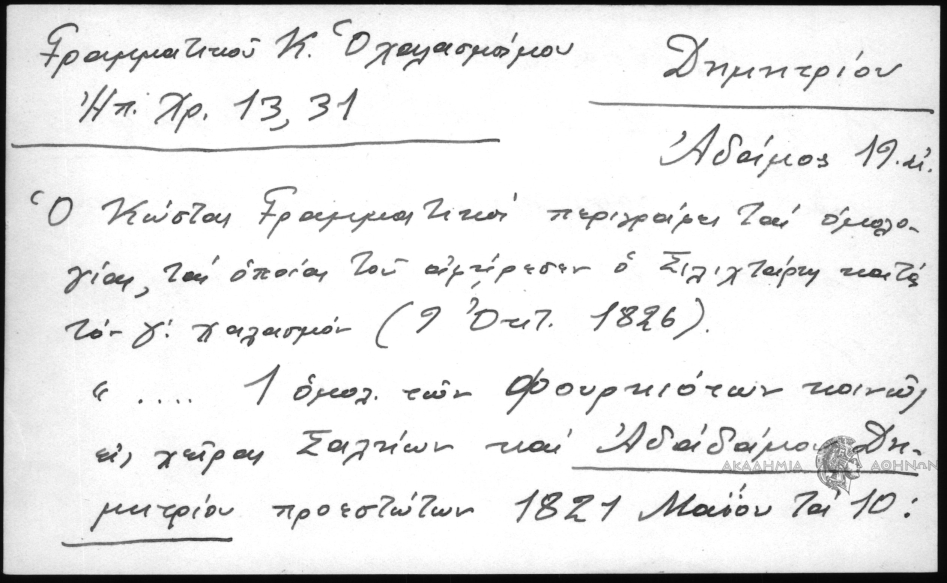 Γραμματικοῦ Κ. Ὁ χαλασμὸς μου
Δημητρίου
Ἠπ. Χρ. 13, 31
Ἀδάμος 19. αἰ.
Ὁ Κώστας Γραμματικὸς περιγράφει τὰς ὁμολο-
γίας, τὰς ὁποίας τοῦ ἀφῄρεσεν ὁ Σιλιχτάρης κατὰ
τὸν γ΄. χαλασμόν (9 Ὀκτ. 1826).
“ .... 1 ὁμολ. τῶν Φουρκιότων κοινῶς
εἰς χεῖρας καὶ Δη-
μητρίου προεστώτων 1821 Μαΐου τὰ 10:
ΑΚΑΔΗΜΙΑ ΑΘΗΝΩΝ